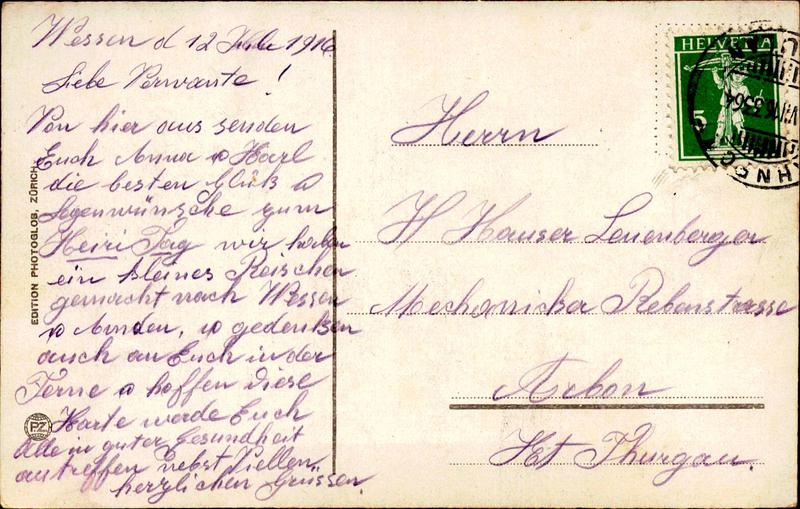 Wessen d 12 Juli 1916
Liebe Verwante!
Von hier aus senden
Euch Anna u Karl
die besten Glück u
Segenwünsche zum
Heiri Tag wir haben
ein kleines Reischen
gemacht nach Wessen
u Amden, u gedenken
auch an Euch in der
Ferne u hoffen diese
Karte werde Euch
Alle in guter Gesundheit
antreffen nebst Viellen
herzlichen Grüssen.
EDITION PHOTOGLOB, ZÜRICH
PZ
HELVETIA
5
Herrn
H Hauser Leuenberger
Mechanicker Rebenstrasse
Arbon
Kt Thurgau.